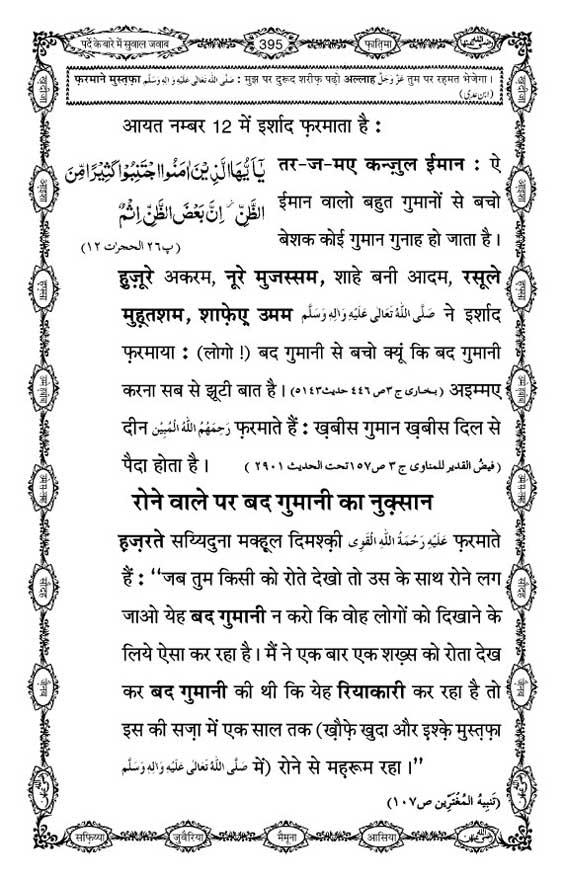 पर्दे के बारे में सुवाल जवाब
395
फ़ातिमा
फ़रमाने मुस्त़फ़ा صَلَّى اللهُ تَعَالٰى عَلَيْهِ وَاٰلِهٖ وَسَلَّم : मुझ पर दुरूद शरीफ़ पढ़ो अल्लाह عَزَّوَجَلَّ तुम पर रहमत भेजेगा ।
(ابن عدی)
आयत नम्बर 12 में इर्शाद फ़रमाता है :
يٰۤاَيُّهَا الَّذِيْنَ اٰمَنُوا اجْتَنِبُوْا كَثِيْرًا مِّنَ
الظَّنِّ ۫ اِنَّ بَعْضَ الظَّنِّ اِثْمٌ
(پ٢٦ الحجرات ١٢)
तर-ज-मए कन्ज़ुल ईमान : ऐ
ईमान वालो बहुत गुमानों से बचो
बेशक कोई गुमान गुनाह हो जाता है ।
हुज़ूरे अकरम, नूरे मुजस्सम, शाहे बनी आदम, रसूले
मुह़्तशम, शाफ़ेए़ उमम صَلَّى اللهُ تَعَالٰى عَلَيْهِ وَاٰلِهٖ وَسَلَّم ने इर्शाद
फ़रमाया : (लोगो !) बद गुमानी से बचो क्यूं कि बद गुमानी
करना सब से झूटी बात है । (بخاری ج ٣ ص ٤٤٦ حدیث ٥١٤٣) अइम्मए
दीन رَحِمَهُمُ اللهُ الْمُبِيْن फ़रमाते हैं : ख़बीस गुमान ख़बीस दिल से
पैदा होता है । (فیضُ القدیر للمناوی ج ٣ ص ١٥٧ تحت الحدیث ٢٩٠١)
रोने वाले पर बद गुमानी का नुक़्सान
ह़ज़रते सय्यिदुना मक्हूल दिमश्क़ी عَلَيْهِ رَحْمَةُ اللهِ الْقَوِى फ़रमाते
हैं : “जब तुम किसी को रोते देखो तो उस के साथ रोने लग
जाओ येह बद गुमानी न करो कि वोह लोगों को दिखाने के
लिये ऐसा कर रहा है । मैं ने एक बार एक शख़्स को रोता देख
कर बद गुमानी की थी कि येह रियाकारी कर रहा है तो
इस की सज़ा में एक साल तक (ख़ौफ़े ख़ुदा और इश्क़े मुस्त़फ़ा
صَلَّى اللهُ تَعَالٰى عَلَيْهِ وَاٰلِهٖ وَسَلَّم में) रोने से मह़रूम रहा ।”
(تَنبِيهُ المُغْتَرِّين ص ١٠٧)
सफ़िय्या
जुवैरिया
मैमूना
आसिया